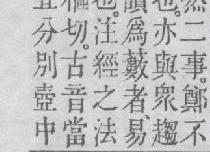 然二事。鄭不
也。亦與衆趨
讀爲藪者、易
也。注經之法
樞切。古音當
分別壺中